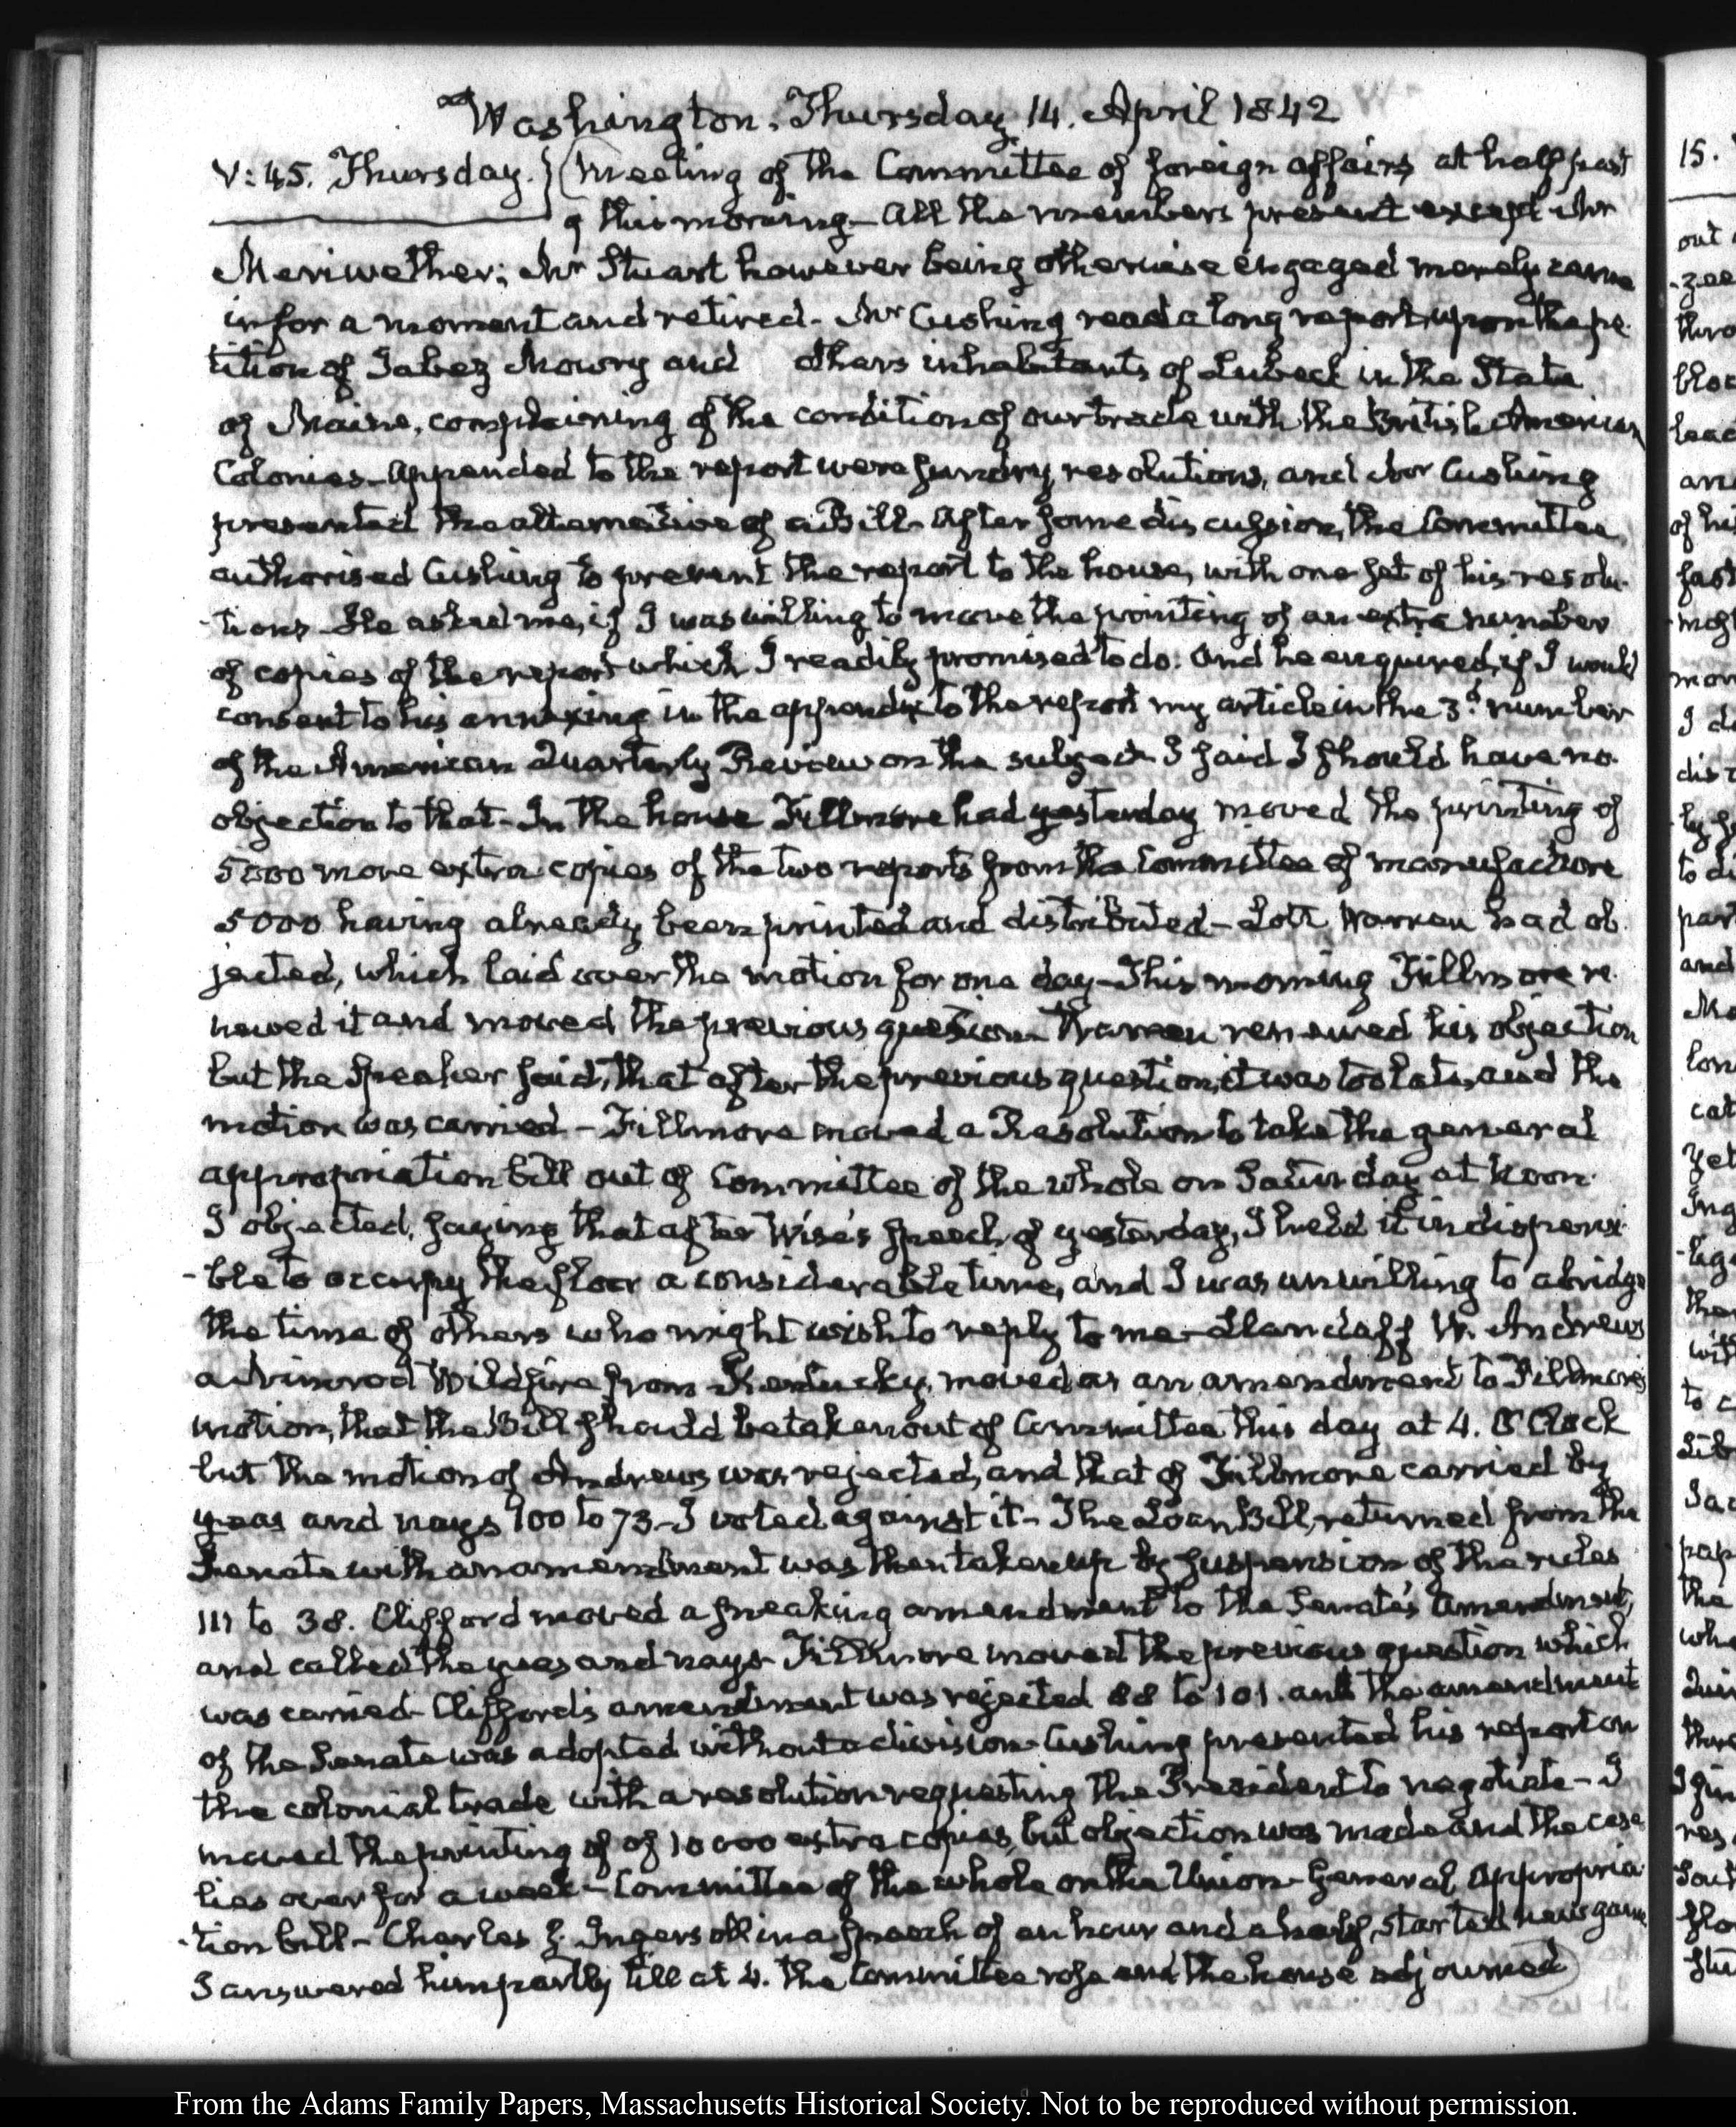 Washington. Thursday 14. April 1842
V:45. Thursday. } (Meeting of the Committee of foreign affairs at half past
9 this morning - All the members present except Mr
Meriwether; Mr Stuart however being otherwise engaged merely came
in for a moment and retired - Mr Cushing read a long report upon the pe-
tition of Jabez Mowry and others inhabitants of Lubeck in the State
of Maine, complaining of the condition of our trade with the British American
Colonies - Appended to the report were sundry resolutions, and Mr Cushing
presented the alternative of a Bill - After some discussion, the Committee
authorised Cushing to present the report to the house, with one set of his resolu-
-tions - He asked me, if I was willing to move the printing of an extra number
of copies of the report which I readily promised to do. And he enquired, if I would
consent to his annexing in the appendix to the report my article in the 3d. number
of the American Quarterly Review on the subject - I said I should have no
objection to that - In the house Fillmore had yesterday moved the printing of
5000 more extra copies of the two reports from the Committee of manufacture
5000 having already been printed and distributed - Lott Warren had ob-
jected, which laid over the motion for one day - This morning Fillmore re-
newed it and moved the previous question - Warren renewed his objection
but the Speaker said, that after the previous question, it was too late, and the
motion was carried - Fillmore moved a Resolution to take the general
appropriation bill out of Committee of the whole on Saturday at Noon.
I objected, saying that after Wise's speech of yesterday, I held it indispensi-
-ble to occupy the floor a considerable time, and I was unwilling to abridge
the time of others who might wish to reply to me - Landaff W. Andrews
a Nimrod Wildfire from Kentucky, moved as an amendment to Fillmore's
motion, that the Bill should be taken out of Committee this day at 4. O'Clock
but the motion of Andrews was rejected, and that of Fillmore carried by
yeas and nays 100 to 73 - I voted against it - The Loan Bill, returned from the
Senate with an amendment was then taken up by suspension of the rules
111 to 38. Clifford moved a sneaking amendment to the Senate's amendment,
and called the yeas and nays - Fillmore moved the previous question which
was carried - Clifford's amendment was rejected 88 to 101. and the amendment
of the Senate was adopted without a division - Cushing presented his report on
the colonial trade with a resolution requesting the President to negotiate - I
moved the printing of of 10000 extra copies, but objection was made and the case
lies over for a week - Committee of the whole on the Union - General Appropria-
-tion bill - Charles J. Ingersoll in a speech of an hour and a half, started new game
I answered him partly till at 4. the Committee rose and the house adjourned)
15.
From the Adams Family Papers, Massachusetts Historical Society. Not to be reproduced without permission.